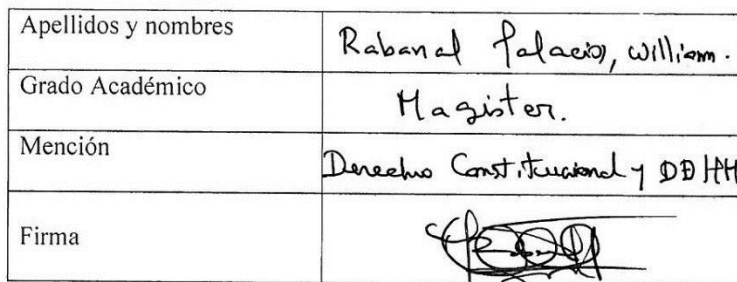 Apellidos y nombres
Rabanal Palacios, william.
Grado Académico
Magister.
Mención
Derecho Constitucional y DDHH
Firma